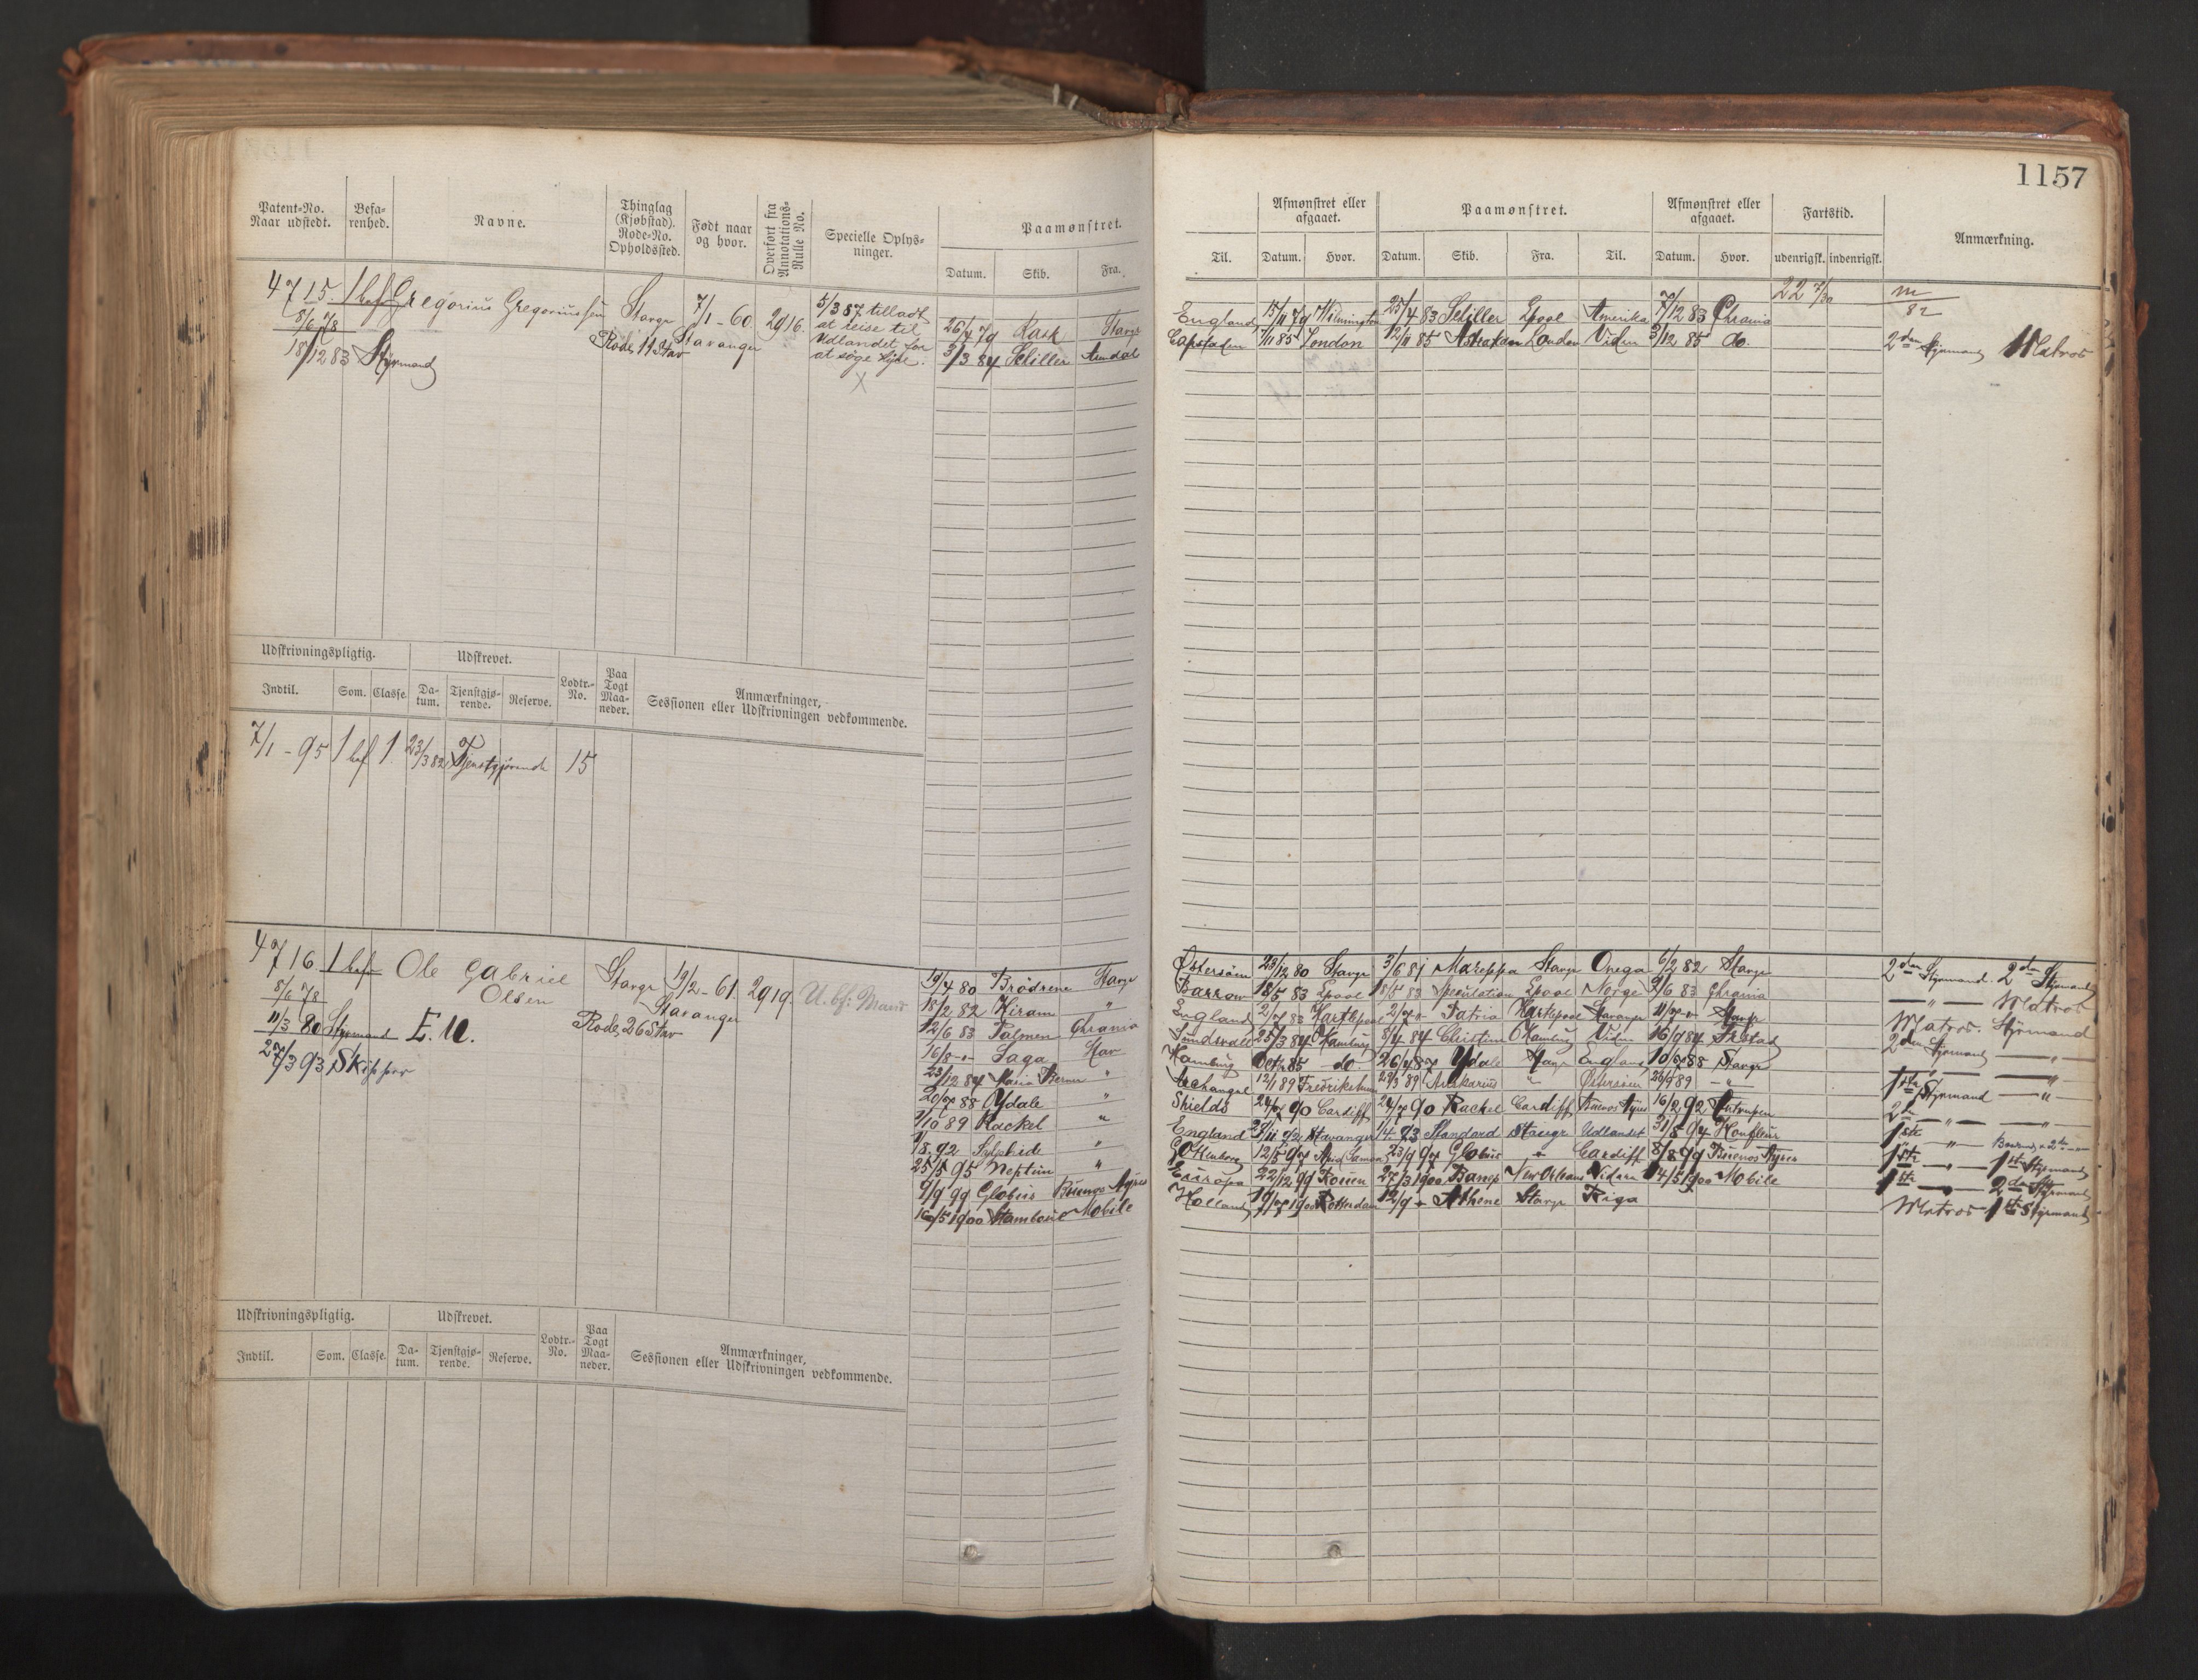 1157
Patent-No. Naar udstedt. Befarenhed. Navne. Thinglag (Kjøbstad). Rode-No. Opholdssted. Født naar og hvor. Overført fra Annotations-Rulle No. Specielle Oplysninger. Paamønstret.
Datum. Skib. Fra.
Afmønstret eller afgaaet. Paamønstret. Afmønstret eller afgaaet. Fartstid. Anmærkning.
Til. Datum. Hvor. Datum. Skib. Fra. Til. Datum. Hvor. udenrigsk. indenrigsk.
4715. 1 bef Gregorius Gregoriussen Stavgr 7/1 - 60. 2916. 5/3 87 tilladt
8/6 78 Rode 11 Stav Stavanger at reise til
18/12 83 Styrmand Udlandet for
at søge Hyre.
X
26/4 79 Rask Stavgr England 15/11 79 Wilmington 25/4 83 Schiller Lpool Amerika 7/12 83 Chrania 22 7/30 m/82
3/3 84 Schiller Arendal Capstaden 7/11 85 London 12/11 85 Astrakan London Viden 3/12 85 do. 2den Styrmand Matros
Udskrivningspligtig. Udskrevet. Lodtr.-No. Paa Togt Maaneder. Anmærkninger, Sessionen eller Udskrivningen vedkommende.
Indtil. Som. Classe. Datum. Tjenstgjørende. Reserve.
7/1 - 95 1 bef 1. 23/3 82 Tjenstgjørende 15
4716 1 bef Ole Gabriel Olsen Stavgr 19/2 - 61. 2919. U. bf: Mand
8/6 78 Stavanger
11/3 80 Styrmand E. U. Rode 26 Stav
27/3 93 Skipper
19/4 80 Brødrene Stavgr Østersøen 23/12 80 Stavgr 3/6 81 Mareppa Stavgr Onega 6/2 82 Stavgr 2den Styrmand 2den Styrmand
18/2 82 Hiram " Barrow 18/5 83 Lpool 18/5 83 Speculation Lpool Norge 9/6 83 Chrania — " — Matros
12/6 83 Palmen Chrania England 2/7 83 Hartlepool 2/7 - Patria Hartlepool Stavanger 11/7 - Stavgr Matros. Styrmand
16/8 - Saga Stav Sundsvall 25/3 84 Hamburg 8/4 84 Christine Hamburg Viden 16/9 84 Frstad 2den Styrmand — " —
23/12 84 Maria " Hamburg Octb 85 do. 26/4 87 Ydale Stavgr England 10/7 88 Stavgr — " — — " —
20/7 88 Ydale " Archangel 12/1 89 Fredrikshavn 29/3 89 " Østersøen 26/9 89 — " — 1ste Styrmand — " —
1/10 89 Rackel " Shields 24/7 90 Cardiff 24/7 90 Rackel Cardiff Buenos Ayres 16/2 92 Antverpen 2den — " — — " —
1/8. 92 Sylphide " England 28/11 92 Stavanger 1/4. 93 Standard Stavgr Udlandet 31/8 94 Honfleur 1ste — " —
25/5 95 Neptun " Gothenborg 12/5 97 23/9 97 Globus " Cardiff 8/8 99 Buenos Ayres 1ste — " — 1ste Styrmand
9/9 99 Globus Buenos Ayres Europa 22/12 99 Rouen 27/3 1900 Banco New Orleans Viden 14/5 1900 Mobile 1ste — " — 2den Styrmand
16/5 1900 Stamboul Mobile Holland 19/7 1900 Rotterdam 12/9 - Athene Stavgr Riga Matros 1ste Styrmand
Udskrivningspligtig. Udskrevet. Lodtr.-No. Paa Togt Maaneder. Anmærkninger, Sessionen eller Udskrivningen vedkommende.
Indtil. Som. Classe. Datum. Tjenstgjørende. Reserve.